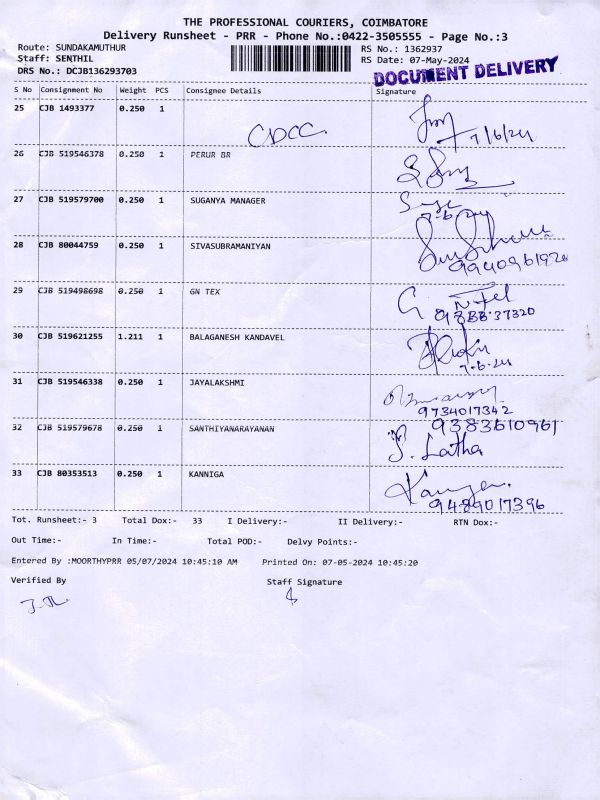 THE PROFESSIONAL COURIERS, COIMBATORE
Delivery Runsheet - PRR - Phone No.:0422-3505555 - Page No.:3
Route: SUNDAKAMUTHUR RS No.: 1362937
Staff: SENTHIL RS Date: 07-May-2024
DRS No.: DCJB136293703 DOCUMENT DELIVERY
S No Consignment No Weight PCS Consignee Details Signature
25 CJB 1493377 0.250 1
CDCC 7/6/24
26 CJB 519546378 0.250 1 PERUR BR
27 CJB 519579700 0.250 1 SUGANYA MANAGER
7-6-24
28 CJB 80044759 0.250 1 SIVASUBRAMANIYAN
9940961920
29 CJB 519498698 0.250 1 GN TEX
30 CJB 519621255 1.211 1 BALAGANESH KANDAVEL
7.6.24
31 CJB 519546338 0.250 1 JAYALAKSHMI
9734017342
32 CJB 519579678 0.250 1 SANTHIYANARAYANAN 9383610961
S. Latha
33 CJB 80353513 0.250 1 KANNIGA
9489017396
Tot. Runsheet:- 3 Total Dox:- 33 I Delivery:- II Delivery:- RTN Dox:-
Out Time:- In Time:- Total POD:- Delvy Points:-
Entered By :MOORTHYPRR 05/07/2024 10:45:10 AM Printed On: 07-05-2024 10:45:20
Verified By Staff Signature